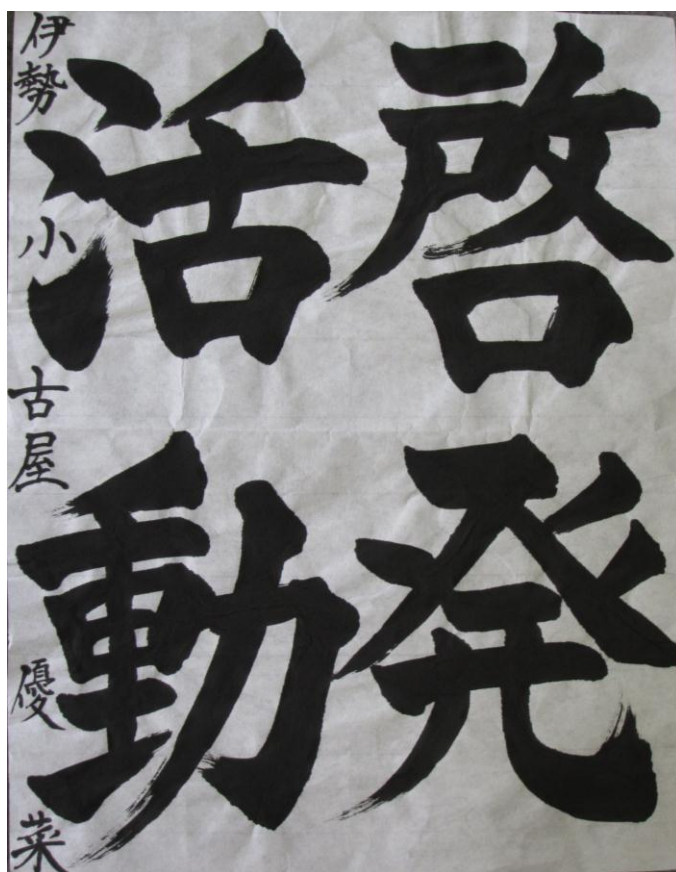 啓発
活動
伊勢小 古屋 優菜